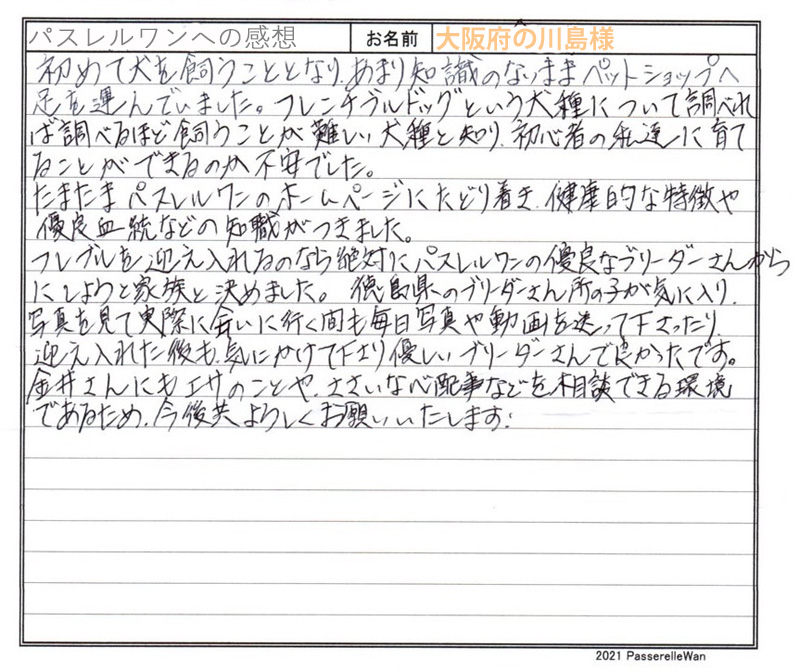 パスレルワンへの感想 お名前 大阪府の川島様
初めて犬を飼うこととなり、あまり知識のないままペットショップへ
足を運んでいました。フレンチブルドッグという犬種について調べれ
ば調べるほど飼うことが難しい犬種と知り、初心者の私達に育て
ることができるのか不安でした。
たまたまパスレルワンのホームページにたどり着き、健康的な特徴や
優良血統などの知識がつきました。
フレブルを迎え入れるのなら絶対にパスレルワンの優良なブリーダーさんから
にしようと家族と決めました。徳島県のブリーダーさん所の子が気に入り、
写真を見て実際に会いに行く間も毎日写真や動画を送って下さったり、
迎え入れた後も、気にかけて下さり優しいブリーダーさんで良かったです。
金井さんにもエサのことや、ささいな心配事などを相談できる環境
であるため、今後共よろしくお願いいたします!
2021 PasserelleWan